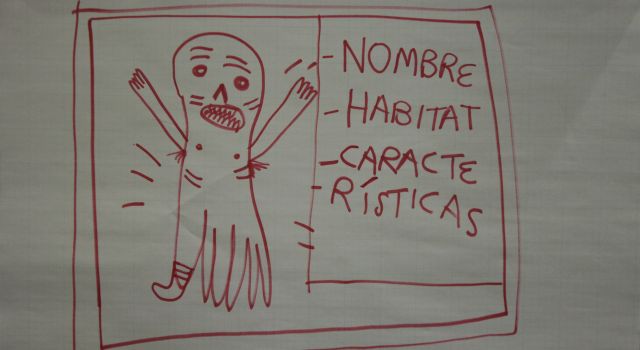 - NOMBRE
- HABITAT
- CARACTE
- RÍSTICAS